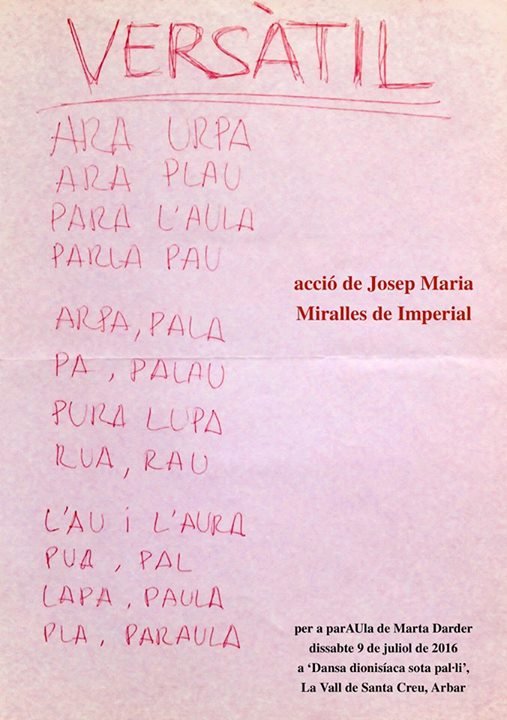 VERSÀTIL
ARA URPA
ARA PLAU
PARA L'AULA
PARLA PAU
ARPA, PALA
PA, PALAU
PURA LUPA
RUA, RAU
L'AU i L'AURA
PUA, PAL
LAPA, PAULA
PLA, PARAULA
acció de Josep Maria
Miralles de Imperial
per a parAUla de Marta Darder
dissabte 9 de juliol de 2016
a ‘Dansa dionisíaca sota pal·li’,
La Vall de Santa Creu, Arbar